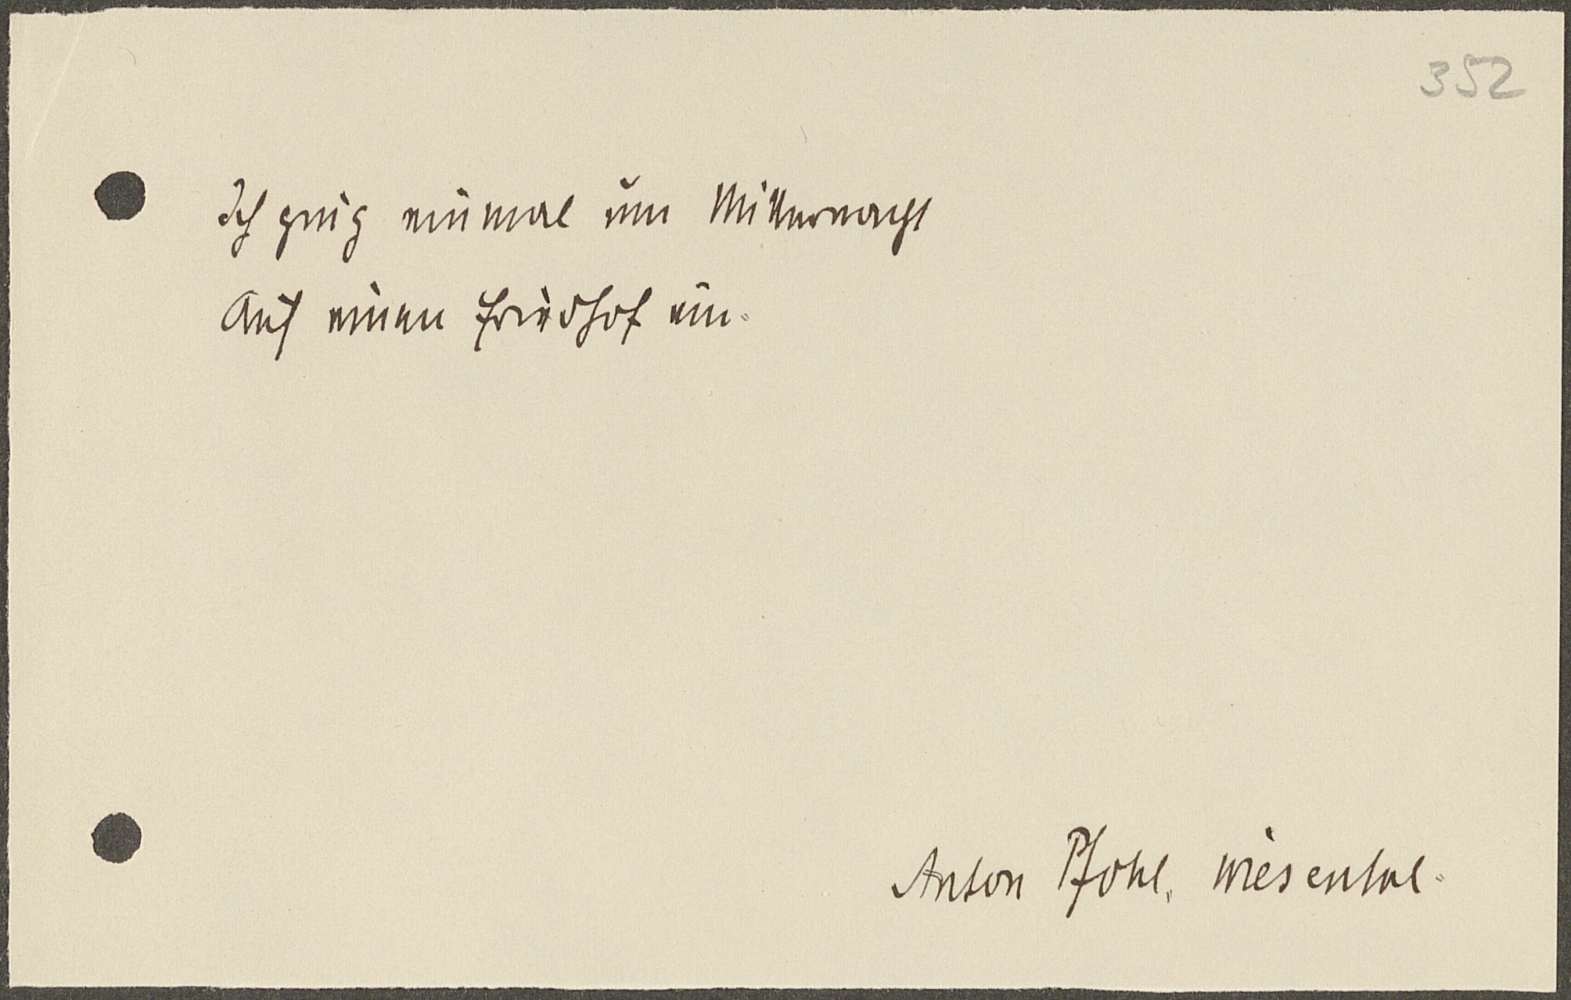 352
Ich ging einmal um Mitternacht
Auf einen Friedhof ein.
Anton Pfohl, Wiesental.